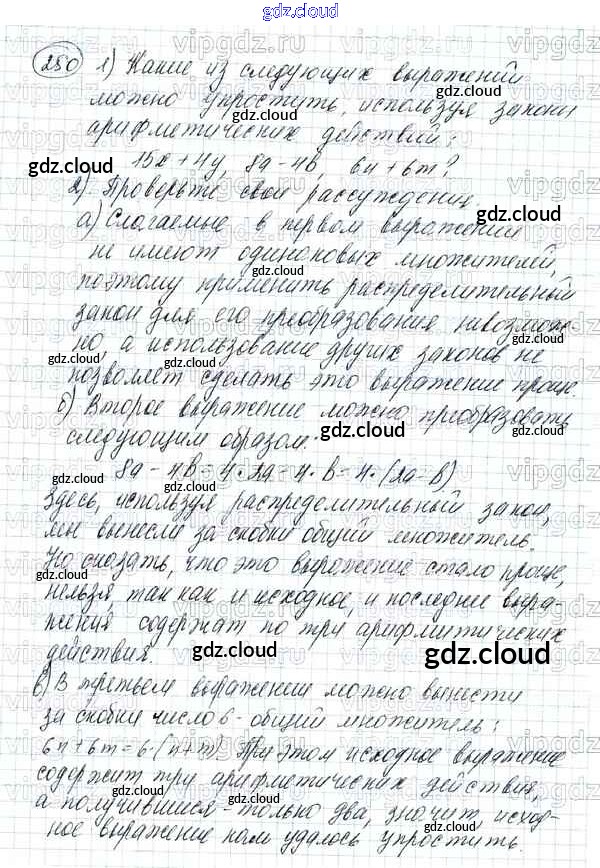 gdz.cloud
280 1) Какие из следующих выражений
можно упростить, используя законы
арифметических действий:
15x + 4y, 8a - 4b, 6n + 6m?
2). Проверьте свои рассуждения.
а) Слагаемые в первом выражении
не имеют одинаковых множителей,
поэтому применить распределительный
закон для его преобразования невозмож-
но, а использование других законов не
позволяет сделать это выражение проще.
б) Второе выражение можно преобразовать
следующим образом:
8a - 4b = 4 · 2a - 4 · b = 4 · (2a - b)
Здесь, используя распределительный закон,
мы вынесли за скобки общий множитель.
Но сказать, что это выражение стало проще,
нельзя, так как и исходное, и последнее выра-
жения содержат по три арифметических
действия.
в) В третьем выражении можно вынести
за скобки число 6 - общий множитель:
6n + 6m = 6 · (n + m). При этом исходное выражение
содержит три арифметических действия,
а получившиеся - только два, значит, исход-
ное выражение нам удалось упростить.